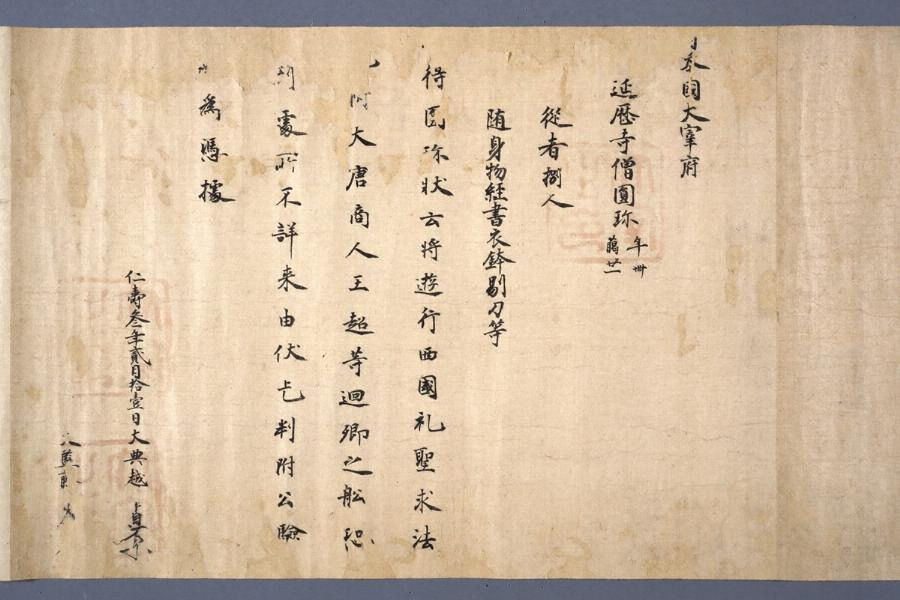 日本國大宰府
延歷寺僧圓珎 年卌 﨟廿一
從者捌人
隨身物經書衣鉢剔刀等
得圓珎狀云將遊行西國礼聖求法
附大唐商人王超等迴鄉之舩恐
到處所不詳来由伏乞判附公驗
以爲憑據
仁壽叁年貳月拾壹日大典越 貞原
大監藤